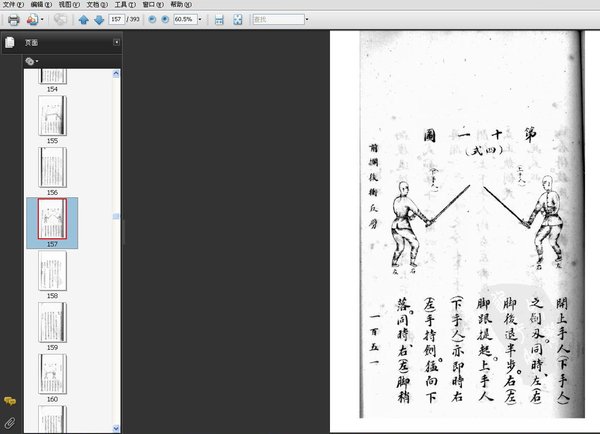 文件(F) 编辑(E) 视图(V) 文档(D) 工具(T) 窗口(W) 帮助(H)
157 / 393 60.5% 查找
页面
154
155
156
157
158
159
160
第十一圖
(四式)
(上手人)
(下手人)
右
左
右
左
開上手人(下手人)
之劍刃。同時、左(右)
脚後退半步。右(左)
脚跟提起。上手人
(下手人)亦即時右
(左)手持劍。猛向下
落。同時、右(左)脚稍
前攔後衝反劈
一百五一